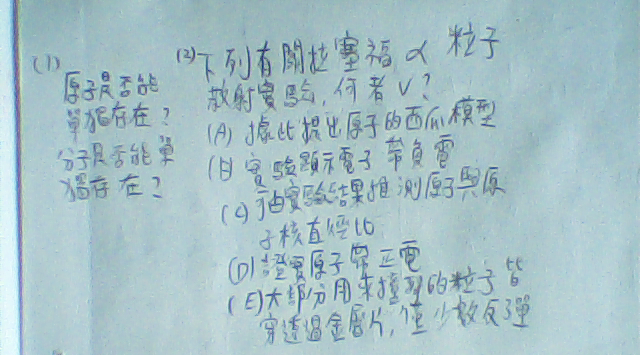 (1)
原子是否能
單獨存在?
分子是否能單
獨存在?
(2)下列有關拉塞福 α 粒子
散射實驗,何者 V?
(A) 據此提出原子的西瓜模型
(B) 實驗顯示電子帶負電
(C) 由實驗結果推測原子與原
子核直徑比
(D) 證實原子帶正電
(E) 大部分用來撞擊的粒子皆
穿透過金箔片,僅少數反彈